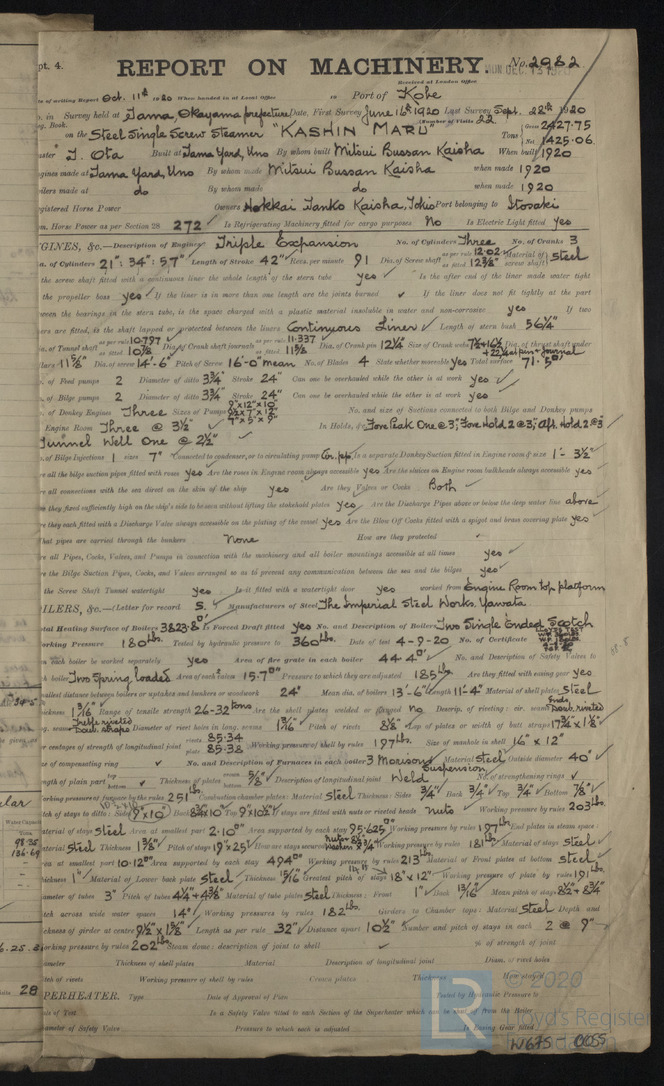 pt. 4.
REPORT ON MACHINERY. No. 2982
Received at London Office
of writing Report Oct. 11th 1920 When handed in at Local Office 10 Port of Kobe
in Survey held at Tama, Okayama prefecture Date, First Survey June 16th 1920 Last Survey Sept. 28th 1920
Book. (Number of Visits 22
on the Steel Single Screw Steamer "KASHIN MARU" Tons Gross 2427.75 Net 1425.06
Master T. Ota Built at Tama Yard, Uno By whom built Mitsui Bussan Kaisha When built 1920
Engines made at Tama Yard, Uno By whom made Mitsui Bussan Kaisha when made 1920
Boilers made at do By whom made do when made 1920
Registered Horse Power Owners Hokkai Tanko Kaisha, Tokio Port belonging to
Horse Power as per Section 28 272 Is Refrigerating Machinery fitted for cargo purposes No Is Electric Light fitted yes
GINES, &c.—Description of Engines Triple Expansion No. of Cylinders Three No. of Cranks 3
of Cylinders 21" : 34" : 57" Length of Stroke 42" Revs. per minute 91 Dia. of Screw shaft as per rule 12.02 as fitted 12 3/8" Material of screw shaft steel
the screw shaft fitted with a continuous liner the whole length of the stern tube yes Is the after end of the liner made water tight
the propeller boss yes If the liner is in more than one length are the joints burned ✓ If the liner does not fit tightly at the part
between the bearings in the stern tube, is the space charged with a plastic material insoluble in water and non-corrosive yes If two
liners are fitted, is the shaft lapped or protected between the liners Continuous Liner Length of stern bush 56 1/4"
Dia. of Tunnel shaft as per rule 10.797 as fitted 10 7/8 Dia. of Crank shaft journals as per rule 11.337 as fitted 11 5/8 Dia. of Crank pin 12 1/4" Size of Crank webs Dia. of thrust shaft under
collars 11 5/8" Dia. of screw 14'-6" Pitch of Screw 16'-0" mean No. of Blades 4 State whether moveable yes Total surface 71.5
of Feed pumps 2 Diameter of ditto 3 3/4" Stroke 24" Can one be overhauled while the other is at work yes
of Bilge pumps 2 Diameter of ditto 3 3/4" Stroke 24" Can one be overhauled while the other is at work yes
of Donkey Engines Three Sizes of Pumps No. and size of Suctions connected to both Bilge and Donkey pumps
Engine Room Three @ 3 1/2" In Holds, &c. Fore Peak One @ 3"; Fore Hold 2 @ 3"; Aft. Hold 2 @ 3"
Tunnel Well One @ 2 1/2"
of Bilge Injections 1 sizes 7" Connected to condenser, or to circulating pump Is a separate Donkey Suction fitted in Engine room & size 1 - 3 1/2"
Are all the bilge suction pipes fitted with roses yes Are the roses in Engine room always accessible yes Are the sluices on Engine room bulkheads always accessible yes
Are all connections with the sea direct on the skin of the ship yes Are they Valves or Cocks Both
they fixed sufficiently high on the ship's side to be seen without lifting the stokehold plates yes Are the Discharge Pipes above or below the deep water line above
they each fitted with a Discharge Valve always accessible on the plating of the vessel yes Are the Blow Off Cocks fitted with a spigot and brass covering plate yes
What pipes are carried through the bunkers None How are they protected
Are all Pipes, Cocks, Valves, and Pumps in connection with the machinery and all boiler mountings accessible at all times yes
Are the Bilge Suction Pipes, Cocks, and Valves arranged so as to prevent any communication between the sea and the bilges yes
the Screw Shaft Tunnel watertight yes Is it fitted with a watertight door yes worked from Engine Room top platform
ILERS, &c.—(Letter for record S. Manufacturers of Steel The Imperial Steel Works Yawata
Total Heating Surface of Boilers 3823.8 Is Forced Draft fitted yes No. and Description of Boilers Two Single Ended Scotch
Working Pressure 180 lbs. Tested by hydraulic pressure to 360 lbs. Date of test 4-9-20 No. of Certificate
Can each boiler be worked separately yes Area of fire grate in each boiler 44.4 No. and Description of Safety Valves to
each boiler Two Spring loaded Area of each valve 15.7 Pressure to which they are adjusted 185 lbs Are they fitted with easing gear yes
Smallest distance between boilers or uptakes and bunkers or woodwork 24" Mean dia. of boilers 13'-6" Length 11'-4" Material of shell plates Steel
Thickness 1 3/16" Range of tensile strength 26-32 tons Are the shell plates welded or flanged no Descrip. of riveting: cir. seams Ends Doub. riveted
long. seams Treble riveted Doub. straps Diameter of rivet holes in long. seams 1 3/16" Pitch of rivets 8 3/8" Lap of plates or width of butt straps 17 3/4" x 1 1/8"
percentages of strength of longitudinal joint rivets 85.34 plate 85.38 Working pressure of shell by rules 197 lbs. Size of manhole in shell 16" x 12"
Size of compensating ring ✓ No. and Description of Furnaces in each boiler 3 Morison Suspension Material Steel Outside diameter 40"
Length of plain part top bottom Thickness of plates crown bottom 5/8" Description of longitudinal joint Weld No. of strengthening rings ✓
Working pressure of furnace by the rules 251 lbs. Combustion chamber plates: Material Steel Thickness: Sides 3/4" Back 3/4" Top 3/4" Bottom 7/8"
Pitch of stays to ditto: Sides 9"x10" If stays are fitted with nuts or riveted heads Nuts Working pressure by rules 203 lbs.
Material of stays Steel Area at smallest part 2.10 Area supported by each stay 95.625 Working pressure by rules 197 lbs End plates in steam space:
Material Steel Thickness 1 3/16" How are stays secured Working pressure by rules 181 lbs. Material of stays Steel
Area at smallest part 10.12 Area supported by each stay 494 Working pressure by rules 213 lbs. Material of Front plates at bottom Steel
Thickness 1" Material of Lower back plate Steel Thickness 15/16" Greatest pitch of stays 18" x 12" Working pressure of plate by rules 191 lbs.
Diameter of tubes 3" Pitch of tubes 4 1/4" + 4 3/8" Material of tube plates Steel Thickness: Front 1" Back 13/16" Mean pitch of stays 8 1/2" + 8 3/4"
Pitch across wide water spaces 14" Working pressures by rules 182 lbs. Girders to Chamber tops: Material Steel Depth and
thickness of girder at centre 9 1/2" x 1 5/8" Length as per rule 32" Distance apart 10 1/2" Number and pitch of stays in each 2 @ 9"
Working pressure by rules 202 lbs Steam dome: description of joint to shell ✓ % of strength of joint
Diameter Thickness of shell plates Material Description of longitudinal joint Diam. of rivet holes
Pitch of rivets Working pressure of shell by rules Crown plates Thickness How stayed
PERHEATER. Type Date of Approval of Plan Tested by Hydraulic Pressure to
Date of Test Is a Safety Valve fitted to each Section of the Superheater which can be shut off from the Boiler
Diameter of Safety Valve Pressure to which each is adjusted Is Easing Gear fitted
© 2020
LR
Lloyd's Register
Foundation
W675 - 0055